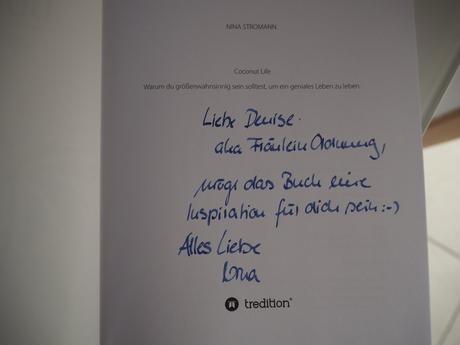 NINA STROMANN
Coconut Life
Warum du größenwahnsinnig sein solltest, um ein geniales Leben zu leben.
Liebe Denise.
aka Fräulein Ordnung,
möge das Buch eine
Inspiration für dich sein :-)
Alles Liebe
Nina
tredition®